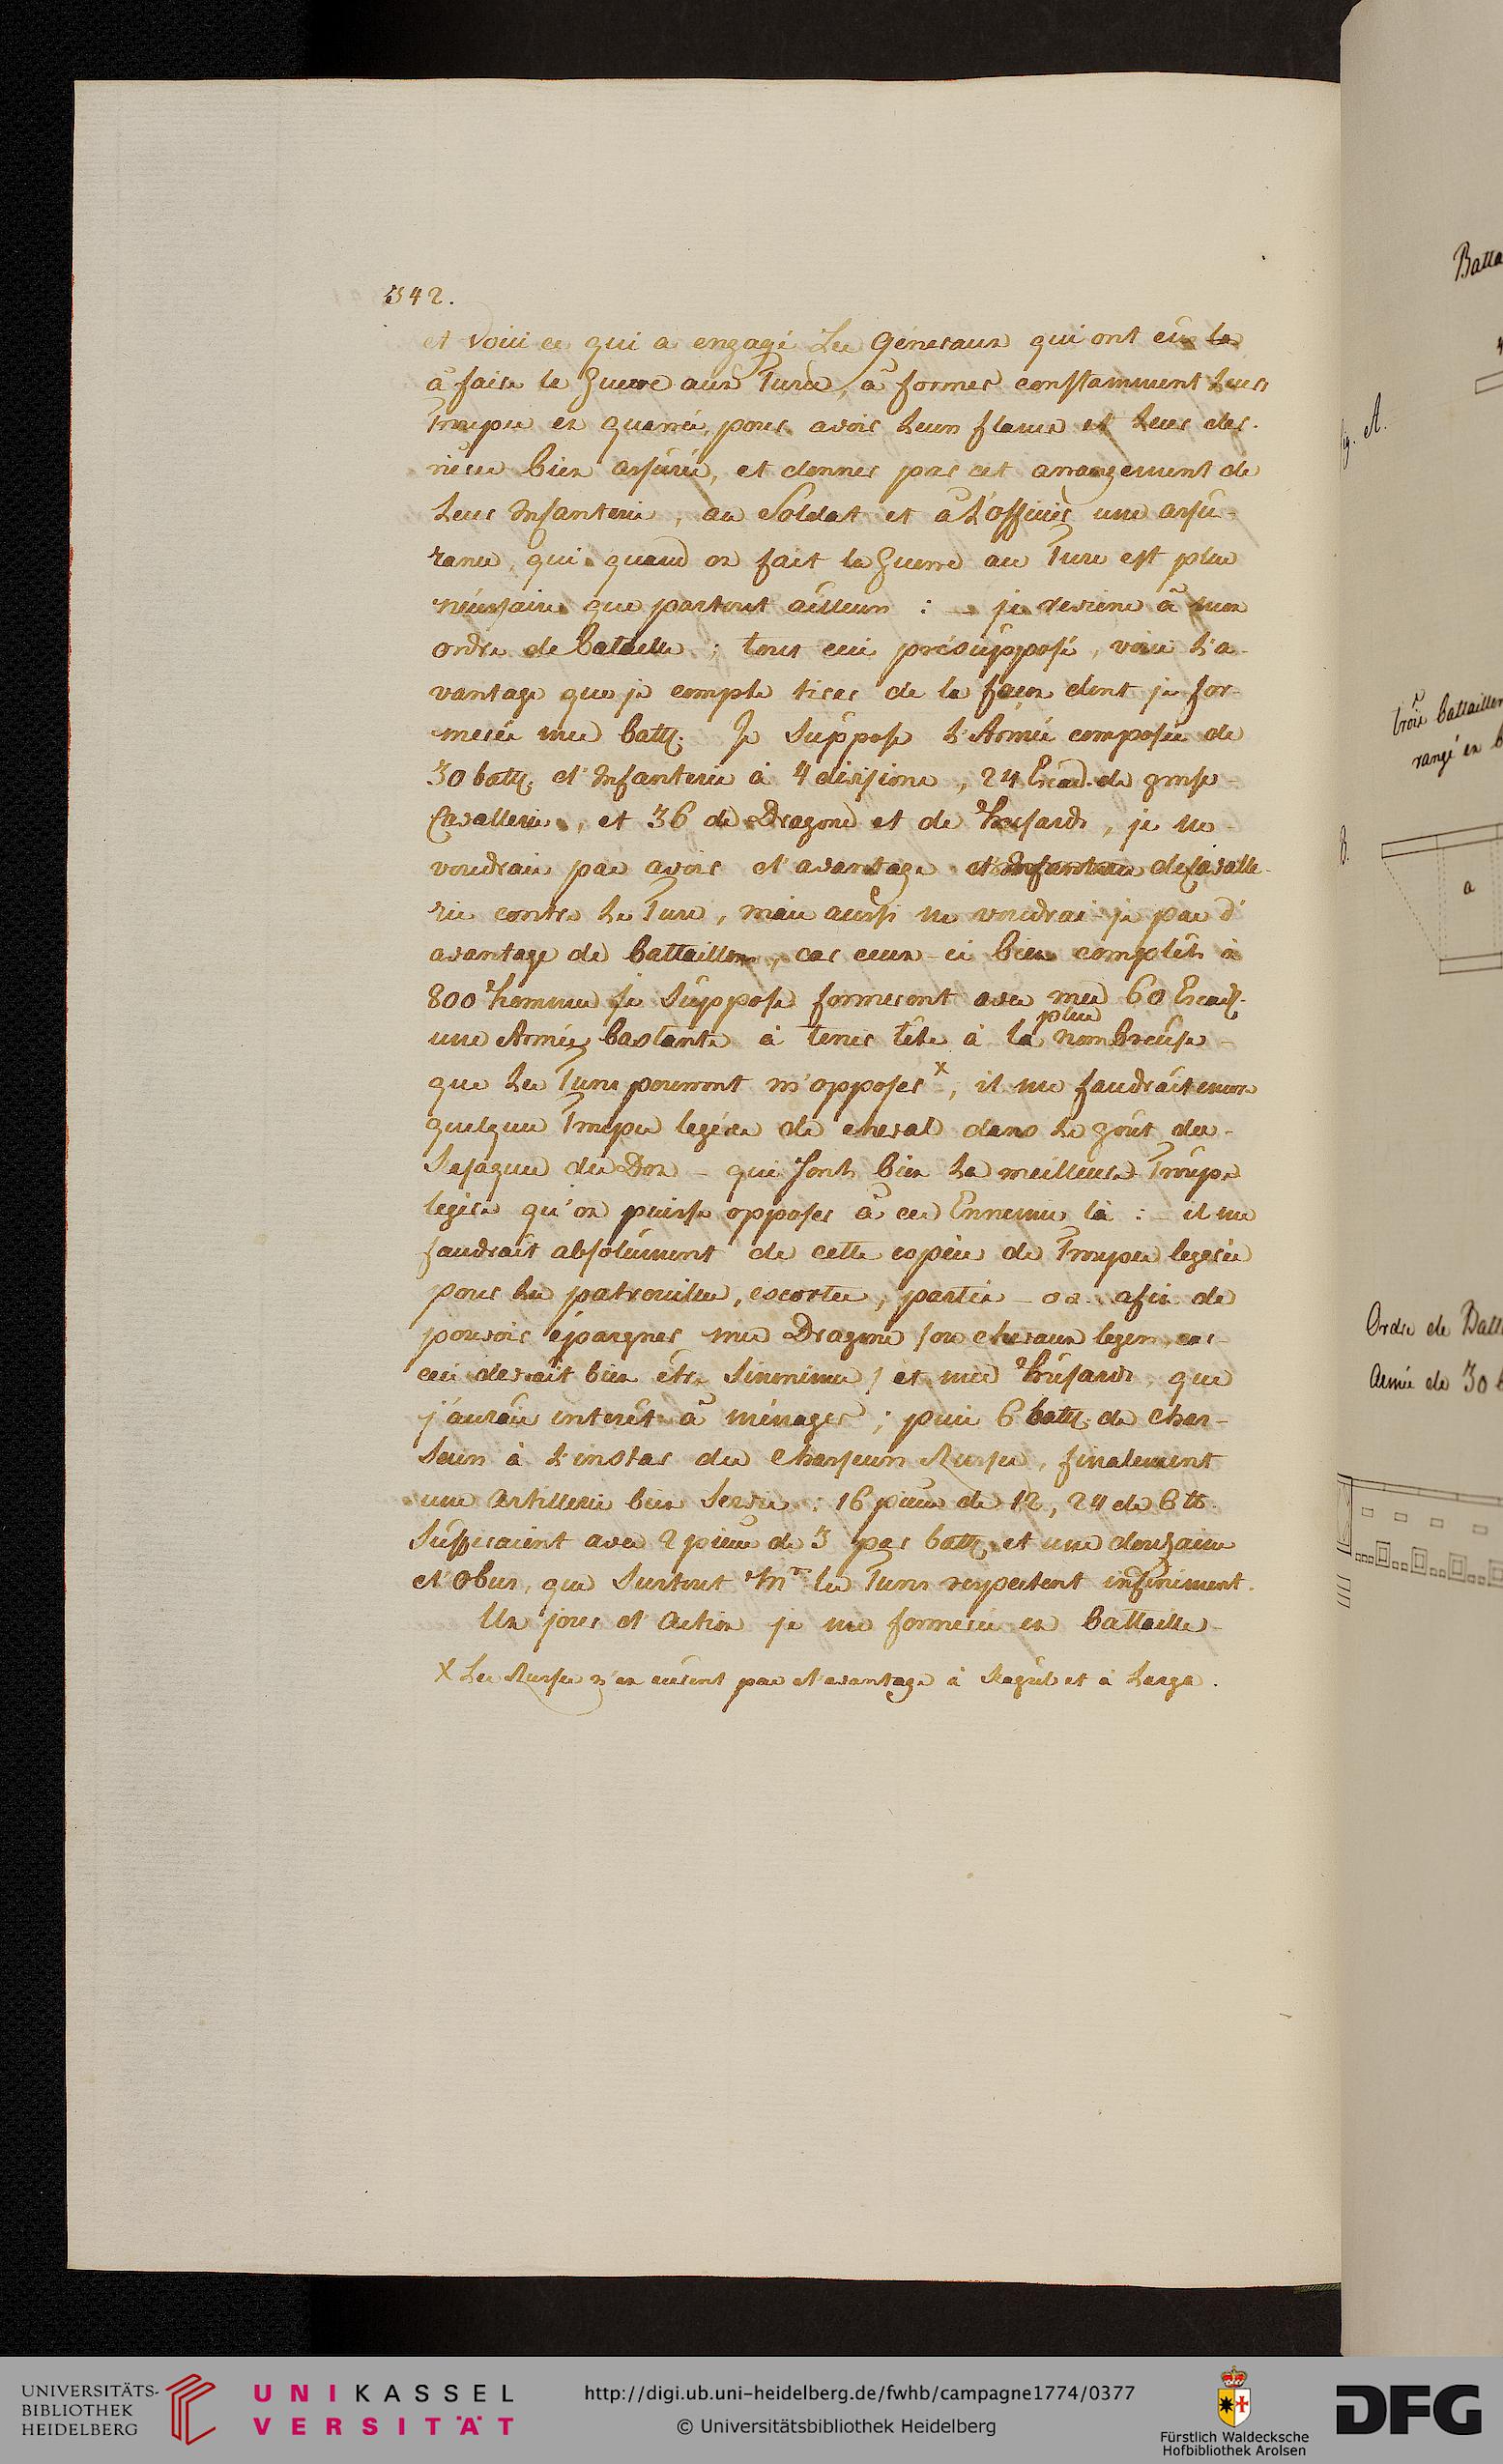 342.
et voici ce qui a engagé Les Géneraux qui ont eû
à faire la Guerre aux Turcs, à former constamment Leurs
Troupes en quarrés, pour avoir Leurs flancs et Leurs der-
riéres bien assurés, et donner par cet arrangement de
Leur Infanterie, au Soldat et à L'officier une assu-
rance, qui quand on fait la Guerre au Turc est plus
nécessaire que partout ailleurs : je reviens à mon
ordre de bataille ; tout ceci présupposé, voici L'a-
vantage que je compte tirer de la façon dont je for-
merais mes batt. Je Suppose L'Armée composée de
30 batt. d'Infanterie à 4 divisions, 24 Escad. de grosse
Cavallerie, et 36 de Dragons et de Housards, je ne
voudrais pas avoir d'avantage d'Infanterie de Cavalle-
rie contre Le Turc, mais aussi ne voudrai-je pas d'
avantage de battaillons, car ceux-ci bien complêts à
800 hommes je Suppose formeront avec mes 60 Escad.
plus
une Armée bastante à tenir tête à la nombreuse
que Les Turcs pourront m'opposer x, il me faudrait encore
quelques Troupes legéres de cheval dans Le goût des
du Don - qui Sont bien La meilleure Troupe
legére qu'on puisse opposer à ces Ennemis là : - il me
faudrait absolument de cette espéce de Troupes legéres
pour Les patrouilles, escortes, partis - afin de
pouvoir épargner mes Dragons / ou chevaux legers, car
ceci devrait bien être Sinonime / et mes Housards, que
j'aurais interêt à ménager ; puis 6 batt. de Chas-
Seurs à L'instar des Chasseurs Russes, finalement
une Artillerie bien Servie : 16 piéces de 12, 24 de 6 lb.
Suffiraient avec 2 piéces de 3 par batt. et une douzaine
d'Obus, que Surtout Mrs les Turcs respectent infiniment.
Un jour d'Action je me formerais en battaille
X Les Russes n'en eurent pas d'avantage à Kagul et à Larga.
Batta
fig. A.
trois battaillon
rangé en b
B.
a
Ordre de Batt
Armée de 30 b
UNIVERSITÄTS-
BIBLIOTHEK
HEIDELBERG
UNIKASSEL
VERSITÄT
http://digi.ub.uni-heidelberg.de/fwhb/campagne1774/0377
© Universitätsbibliothek Heidelberg
Fürstlich Waldecksche
Hofbibliothek Arolsen
DFG